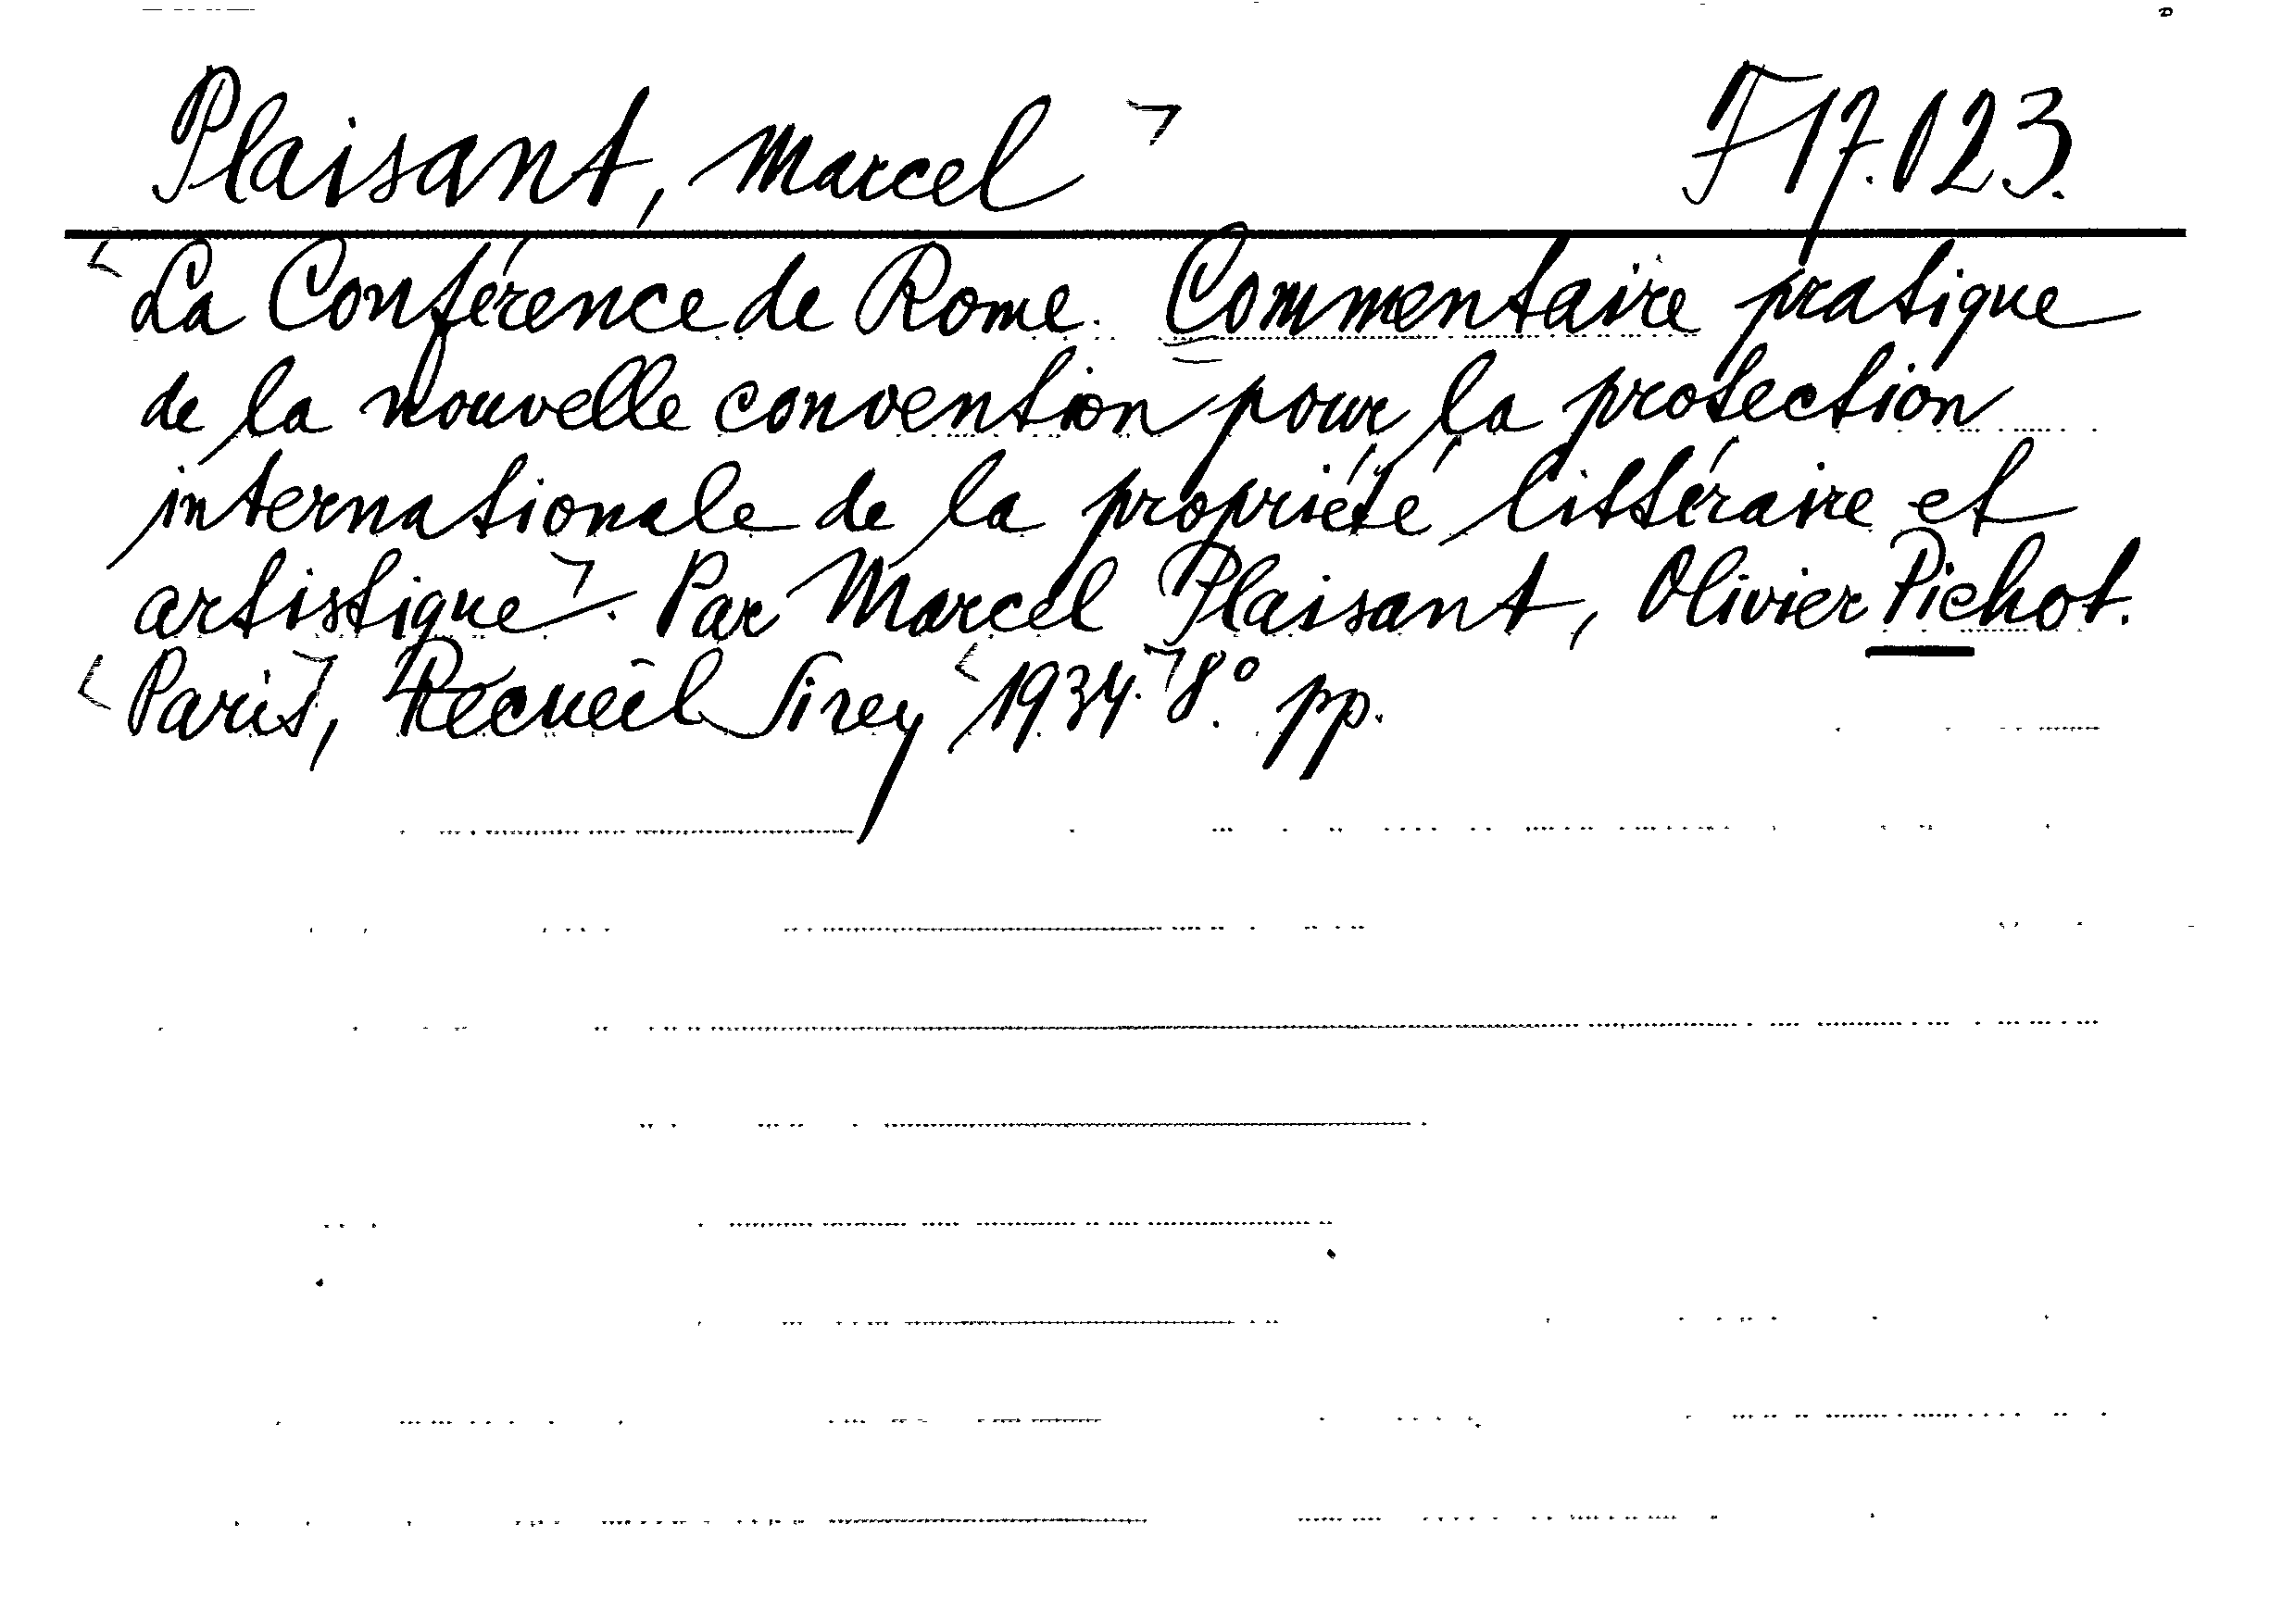 Plaisant, Marcel F17.023.
La Conférence de Rome. Commentaire pratique
de la nouvelle convention pour la protection
internationale de la propriété littéraire et
artistique. Par Marcel Plaisant, Olivier Pichot.
Paris, Recueil Sirey 1934. 8.° pp.